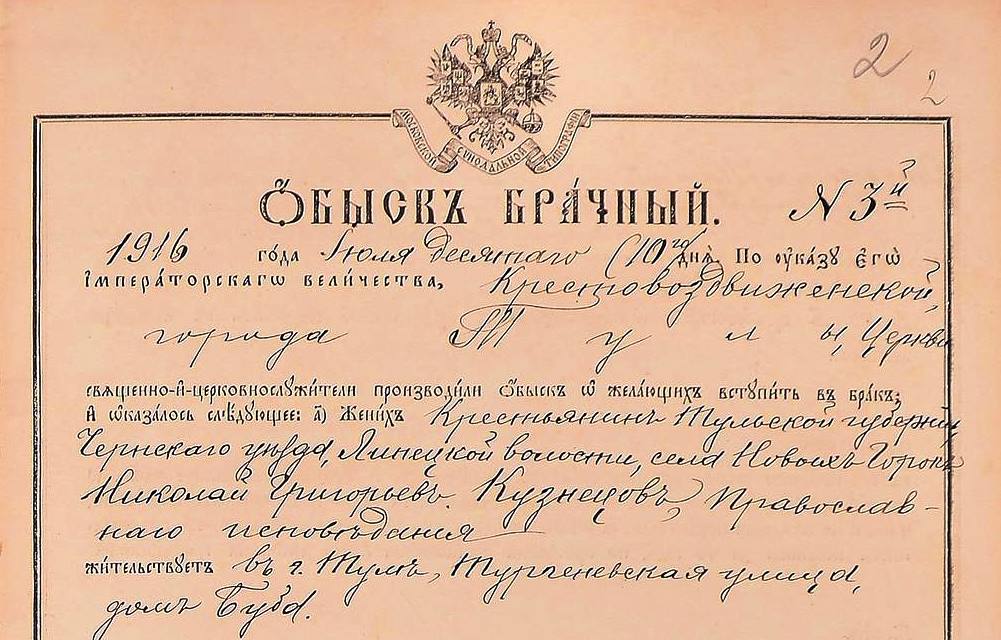 2
2
МОСКОВСКОЙ СѴНОДАЛЬНОЙ ТИПОГРАФІИ
Ѻ҆БЫСКЪ БРА́ЧНЫЙ. N 3й
1916 го́да Іюля десятаго (10го) днѧ̀. По ᲂу҆ка́зу Е҆гѡ̀
И҆мпера́торскагѡ вели́чества, Крестовоздвиженской,
города Тулы, Церкви
свѧще́нно-и҆-церковнослꙋжи́тели производи́ли ѻ҆́быскъ ѡ҆ жела́ющихъ встꙋпи́ть въ бра́къ;
и҆ ѡ҆каза́лось слѣ́дꙋющее: а҃) Жени́хъ Крестьянинъ Тульской губерніи,
Чернскаго уѣзда, Липецкой волости, села Новыхъ Горокъ
Николай Григорьевъ Кузнецовъ, Православ-
наго исповѣданія
жи́тельствꙋетъ въ г. Тулѣ, Тургеневская улица,
домъ